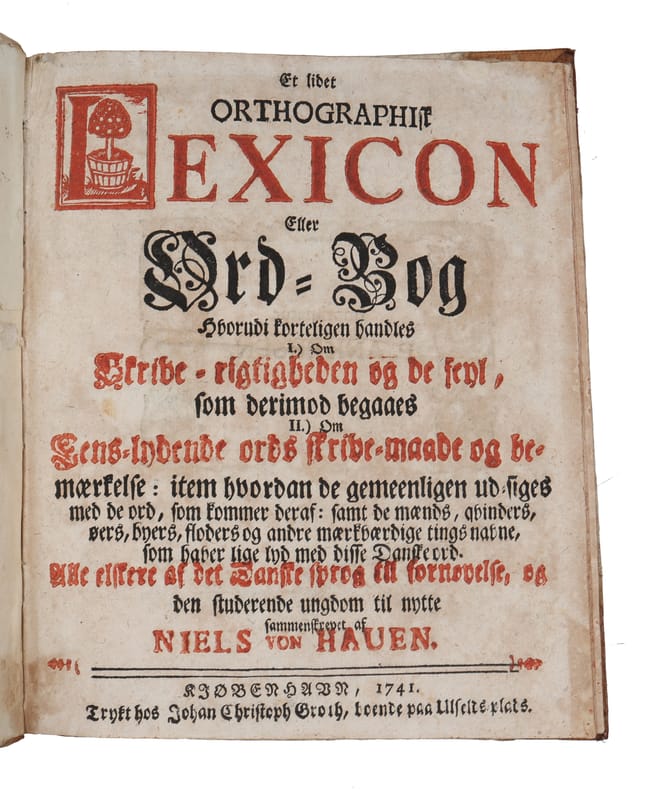 Et lidet
ORTHOGRAPHIsk
LEXICON
Eller
Ord-Bog
Hvorudi korteligen handles
I.) Om
Skrive-rigtigheden og de feyl,
som derimod begaaes
II.) Om
Eens-lydende ords skrive-maade og be-
mærkelse: item hvordan de gemeenligen ud-siges
med de ord, som kommer deraf: samt de mænds, qvinders,
øers, byers, floders og andre mærkværdige tings navne,
som haver lige lyd med disse Danske ord.
Alle elskere af det Danske sprog til fornøyelse, og
den studerende ungdom til nytte
sammenskrevet af
NIELS VON HAUEN.
KJØBENHAVN, 1741.
Trykt hos Johan Christoph Groth, boende paa Ulfelds plads.